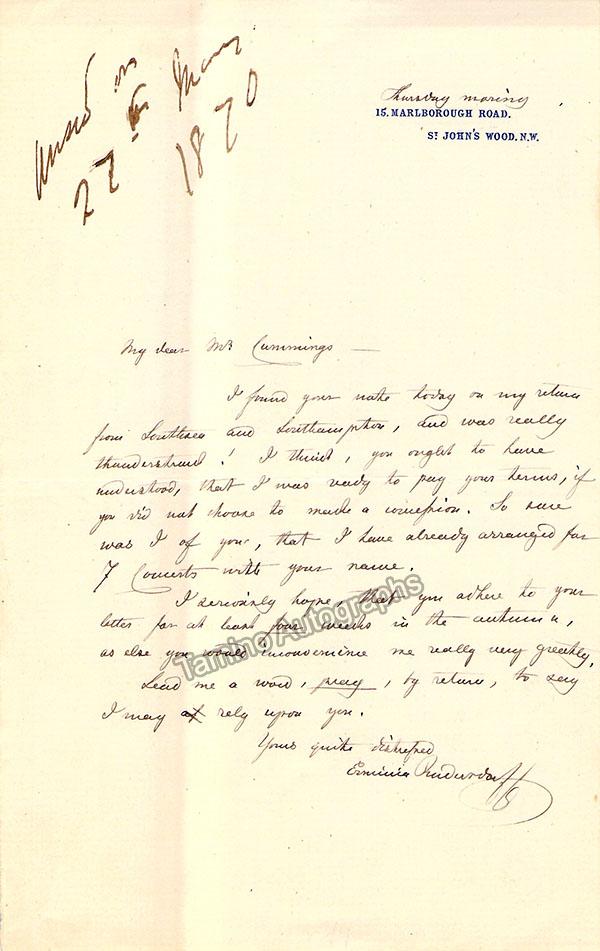 ansd on
27th May
1870
Thursday morning
15. MARLBOROUGH ROAD.
ST JOHN'S WOOD. N.W.
My dear Mr Cummings —
I found your note today on my return
from Southsea and Southampton, and was really
thunderstruck! I think, you ought to have
understood, that I was ready to pay your terms, if
you did not choose to make a concession. So sure
was I of you, that I have already arranged for
7 Concerts with your name.
I seriously hope, that you adhere to your
letter for at least four weeks in the autumn,
as else you would inconvenience me really very greatly.
Send me a word, pray, by return, to say
I may rely upon you.
Yours quite distressed
Erminia Rudersdorff
Tamino Autographs